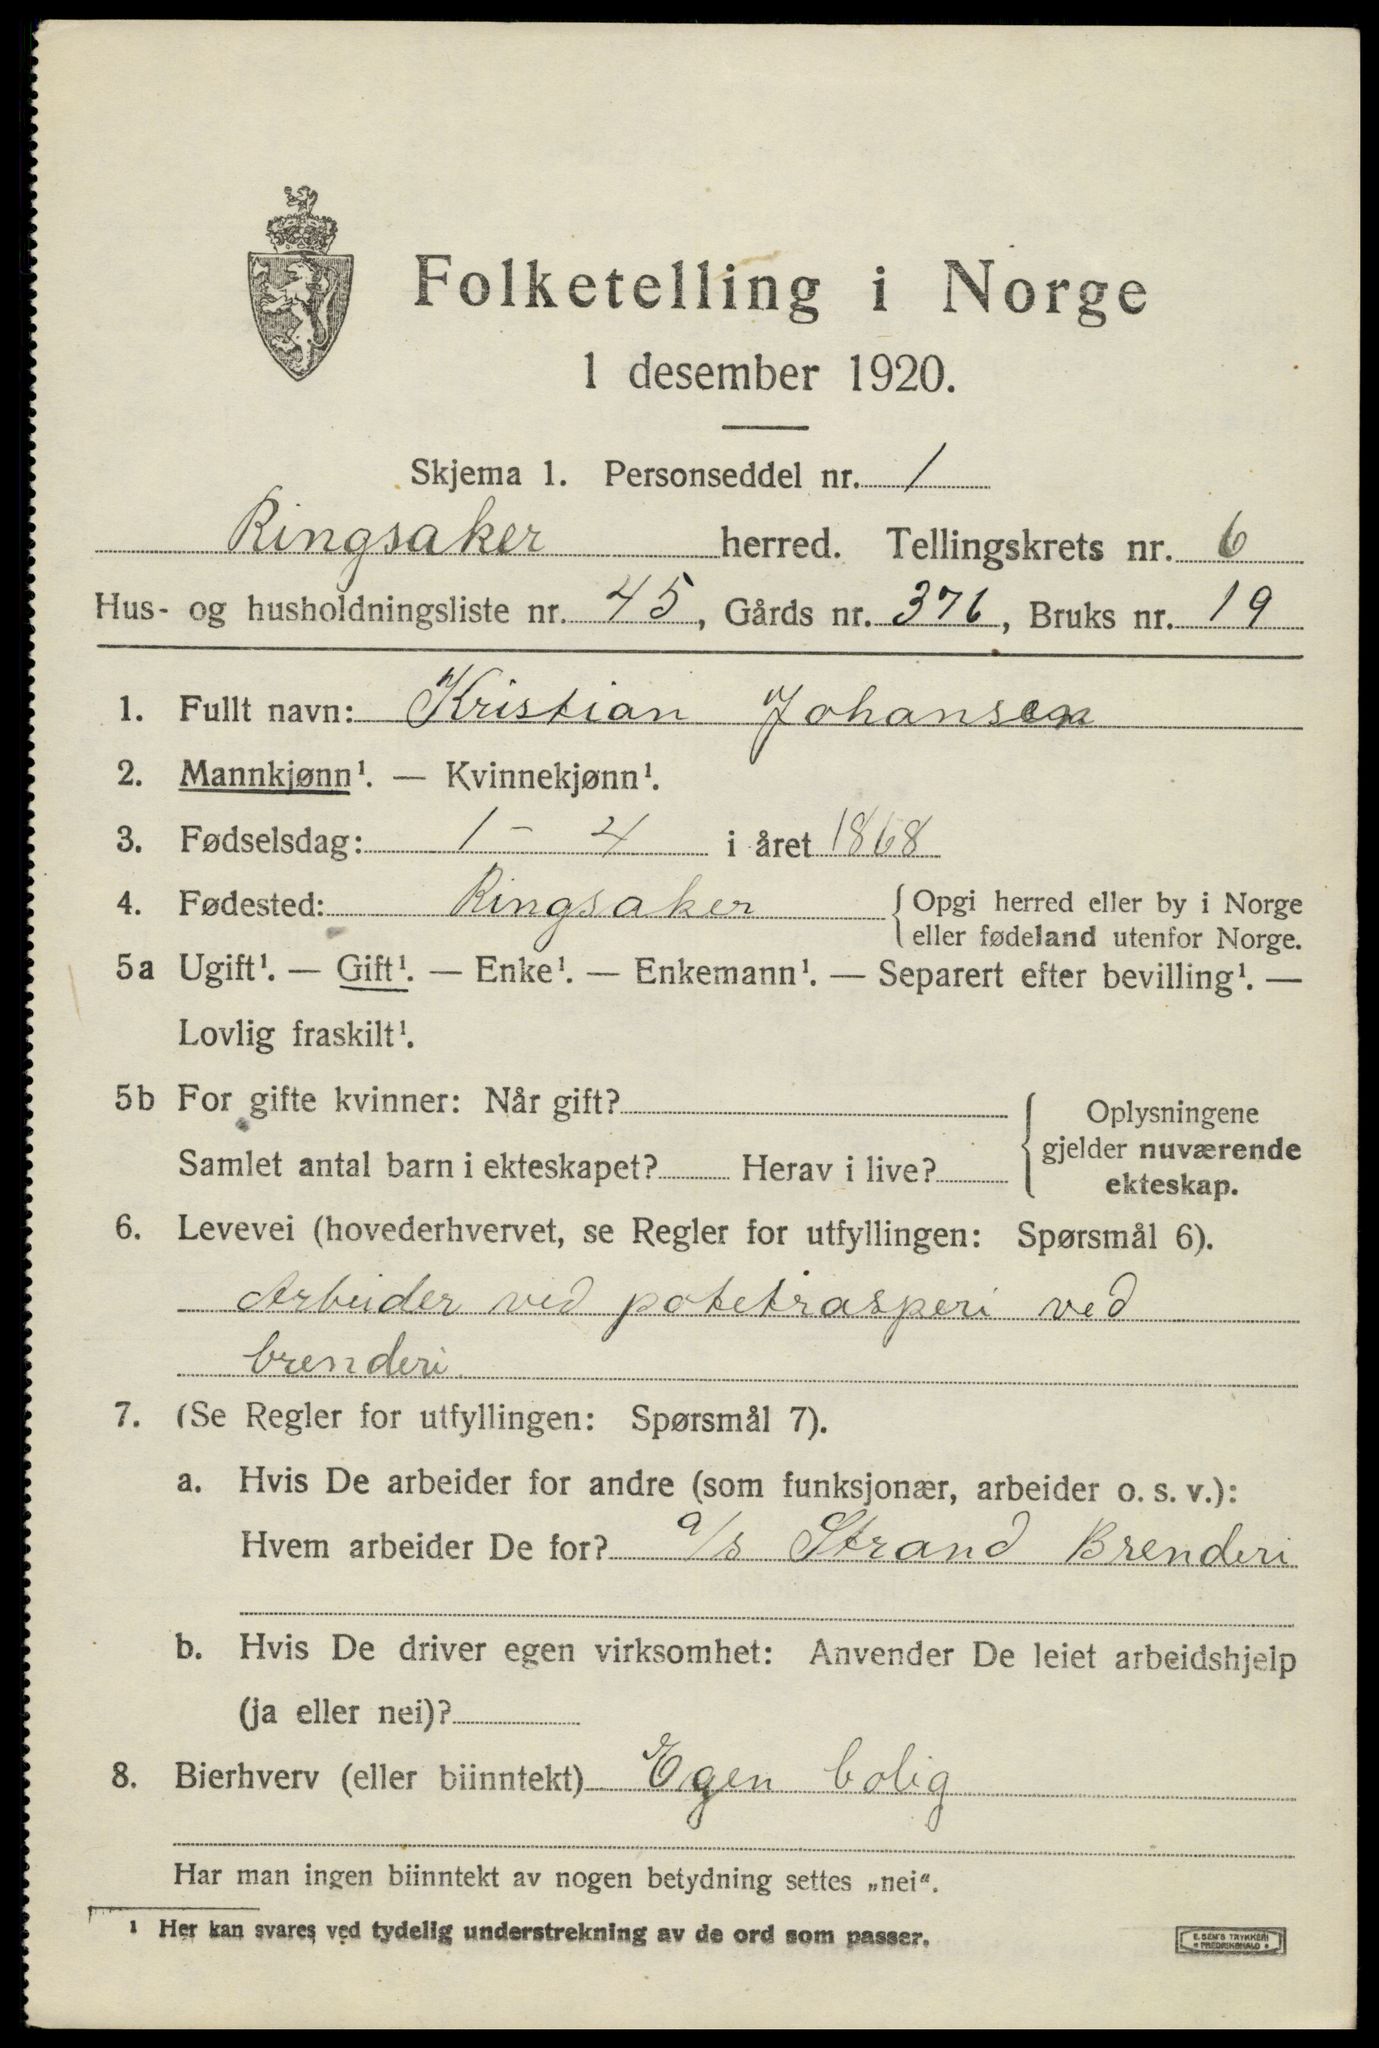 Folketelling i Norge
1 desember 1920.
Skjema 1. Personseddel nr. 1
Ringsaker herred. Tellingskrets nr. 6
Hus- og husholdningsliste nr. 45, Gårds nr. 376, Bruks nr. 19
1. Fullt navn: Kristian Johansen
2. Mannkjønn¹. — Kvinnekjønn¹.
3. Fødselsdag: 1 - 4 i året 1868
4. Fødested: Ringsaker { Opgi herred eller by i Norge
eller fødeland utenfor Norge.
5a Ugift¹. — Gift¹. — Enke¹. — Enkemann¹. — Separert efter bevilling¹. —
Lovlig fraskilt¹.
5b For gifte kvinner: Når gift?
Samlet antal barn i ekteskapet? Herav i live?
{ Oplysningene
gjelder nuværende
ekteskap.
6. Levevei (hovederhvervet, se Regler for utfyllingen: Spørsmål 6).
Arbeider ved potetrasperi ved
brenderi.
7. (Se Regler for utfyllingen: Spørsmål 7).
a. Hvis De arbeider for andre (som funksjonær, arbeider o. s. v.):
Hvem arbeider De for? a/s Strand Brenderi
b. Hvis De driver egen virksomhet: Anvender De leiet arbeidshjelp
(ja eller nei)?
8. Bierhverv (eller biinntekt) Egen bolig
Har man ingen biinntekt av nogen betydning settes „nei“.
¹ Her kan svares ved tydelig understrekning av de ord som passer.
E. SEM'S TRYKKERI
• FREDRIKSHALD •